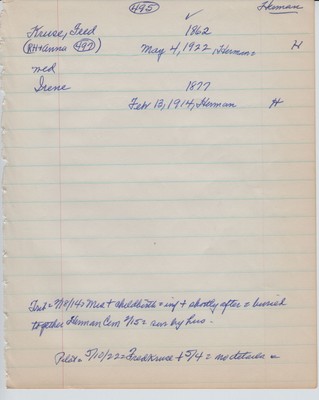 495
Heman
✓
Kruse, Fred 1862
(RH+Anna 497) May 4, 1922, Herman = H
med
Irene 1877
Feb 13, 1914, Herman H
= 2/18/14 = Mrs + childbirth + inf + shortly after = buried
together Herman Cem 2/15 = sur by hus -
= 5/10/22 = Fred Kruse + 5/4 = no details =